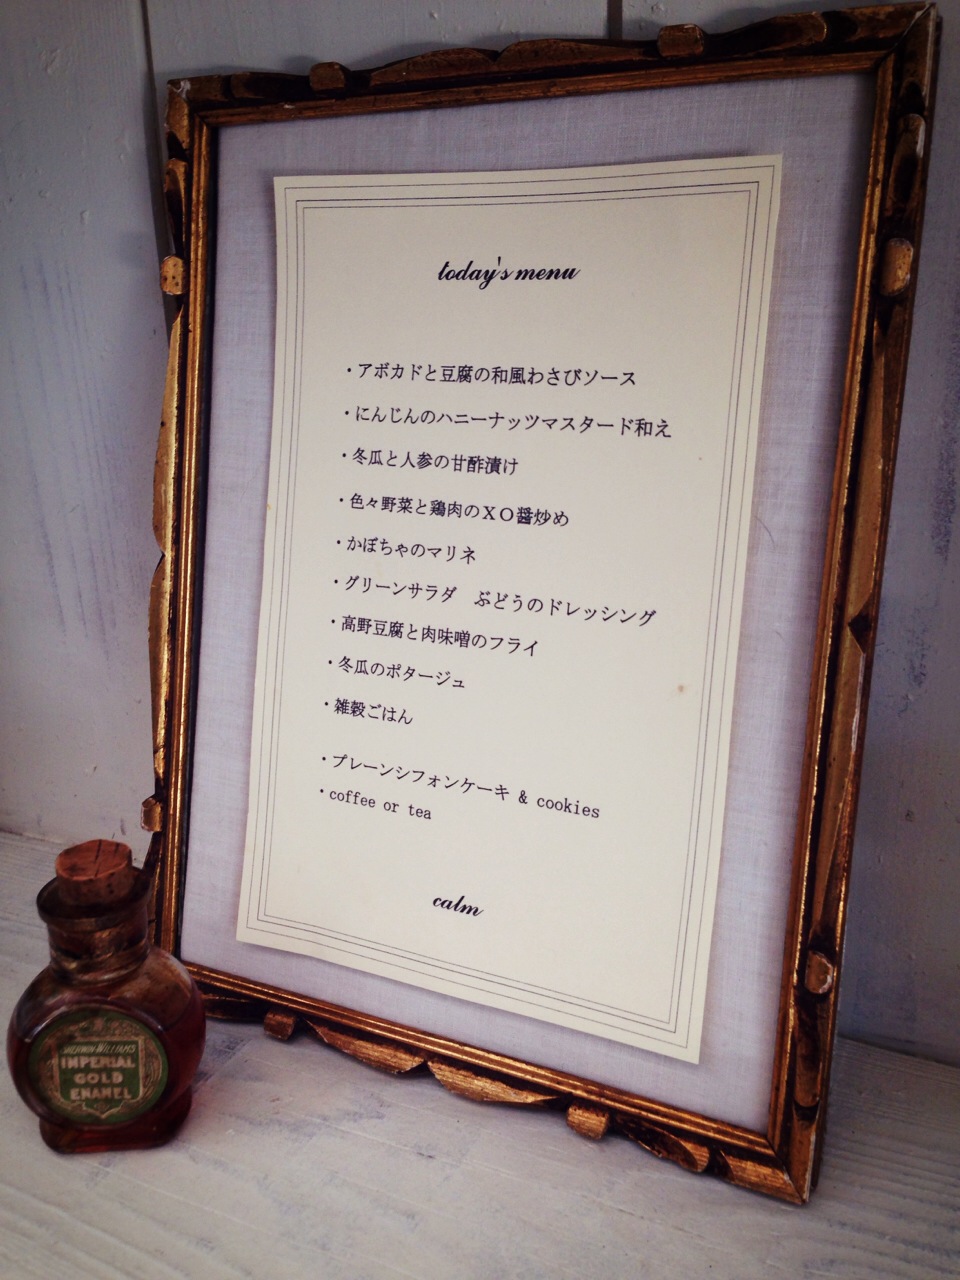 today's menu
・アボカドと豆腐の和風わさびソース
・にんじんのハニーナッツマスタード和え
・冬瓜と人参の甘酢漬け
・色々野菜と鶏肉のＸＯ醤炒め
・かぼちゃのマリネ
・グリーンサラダ　ぶどうのドレッシング
・高野豆腐と肉味噌のフライ
・冬瓜のポタージュ
・雑穀ごはん
・プレーンシフォンケーキ & cookies
・coffee or tea
calm
SHERWIN-WILLIAMS
IMPERIAL
GOLD
ENAMEL